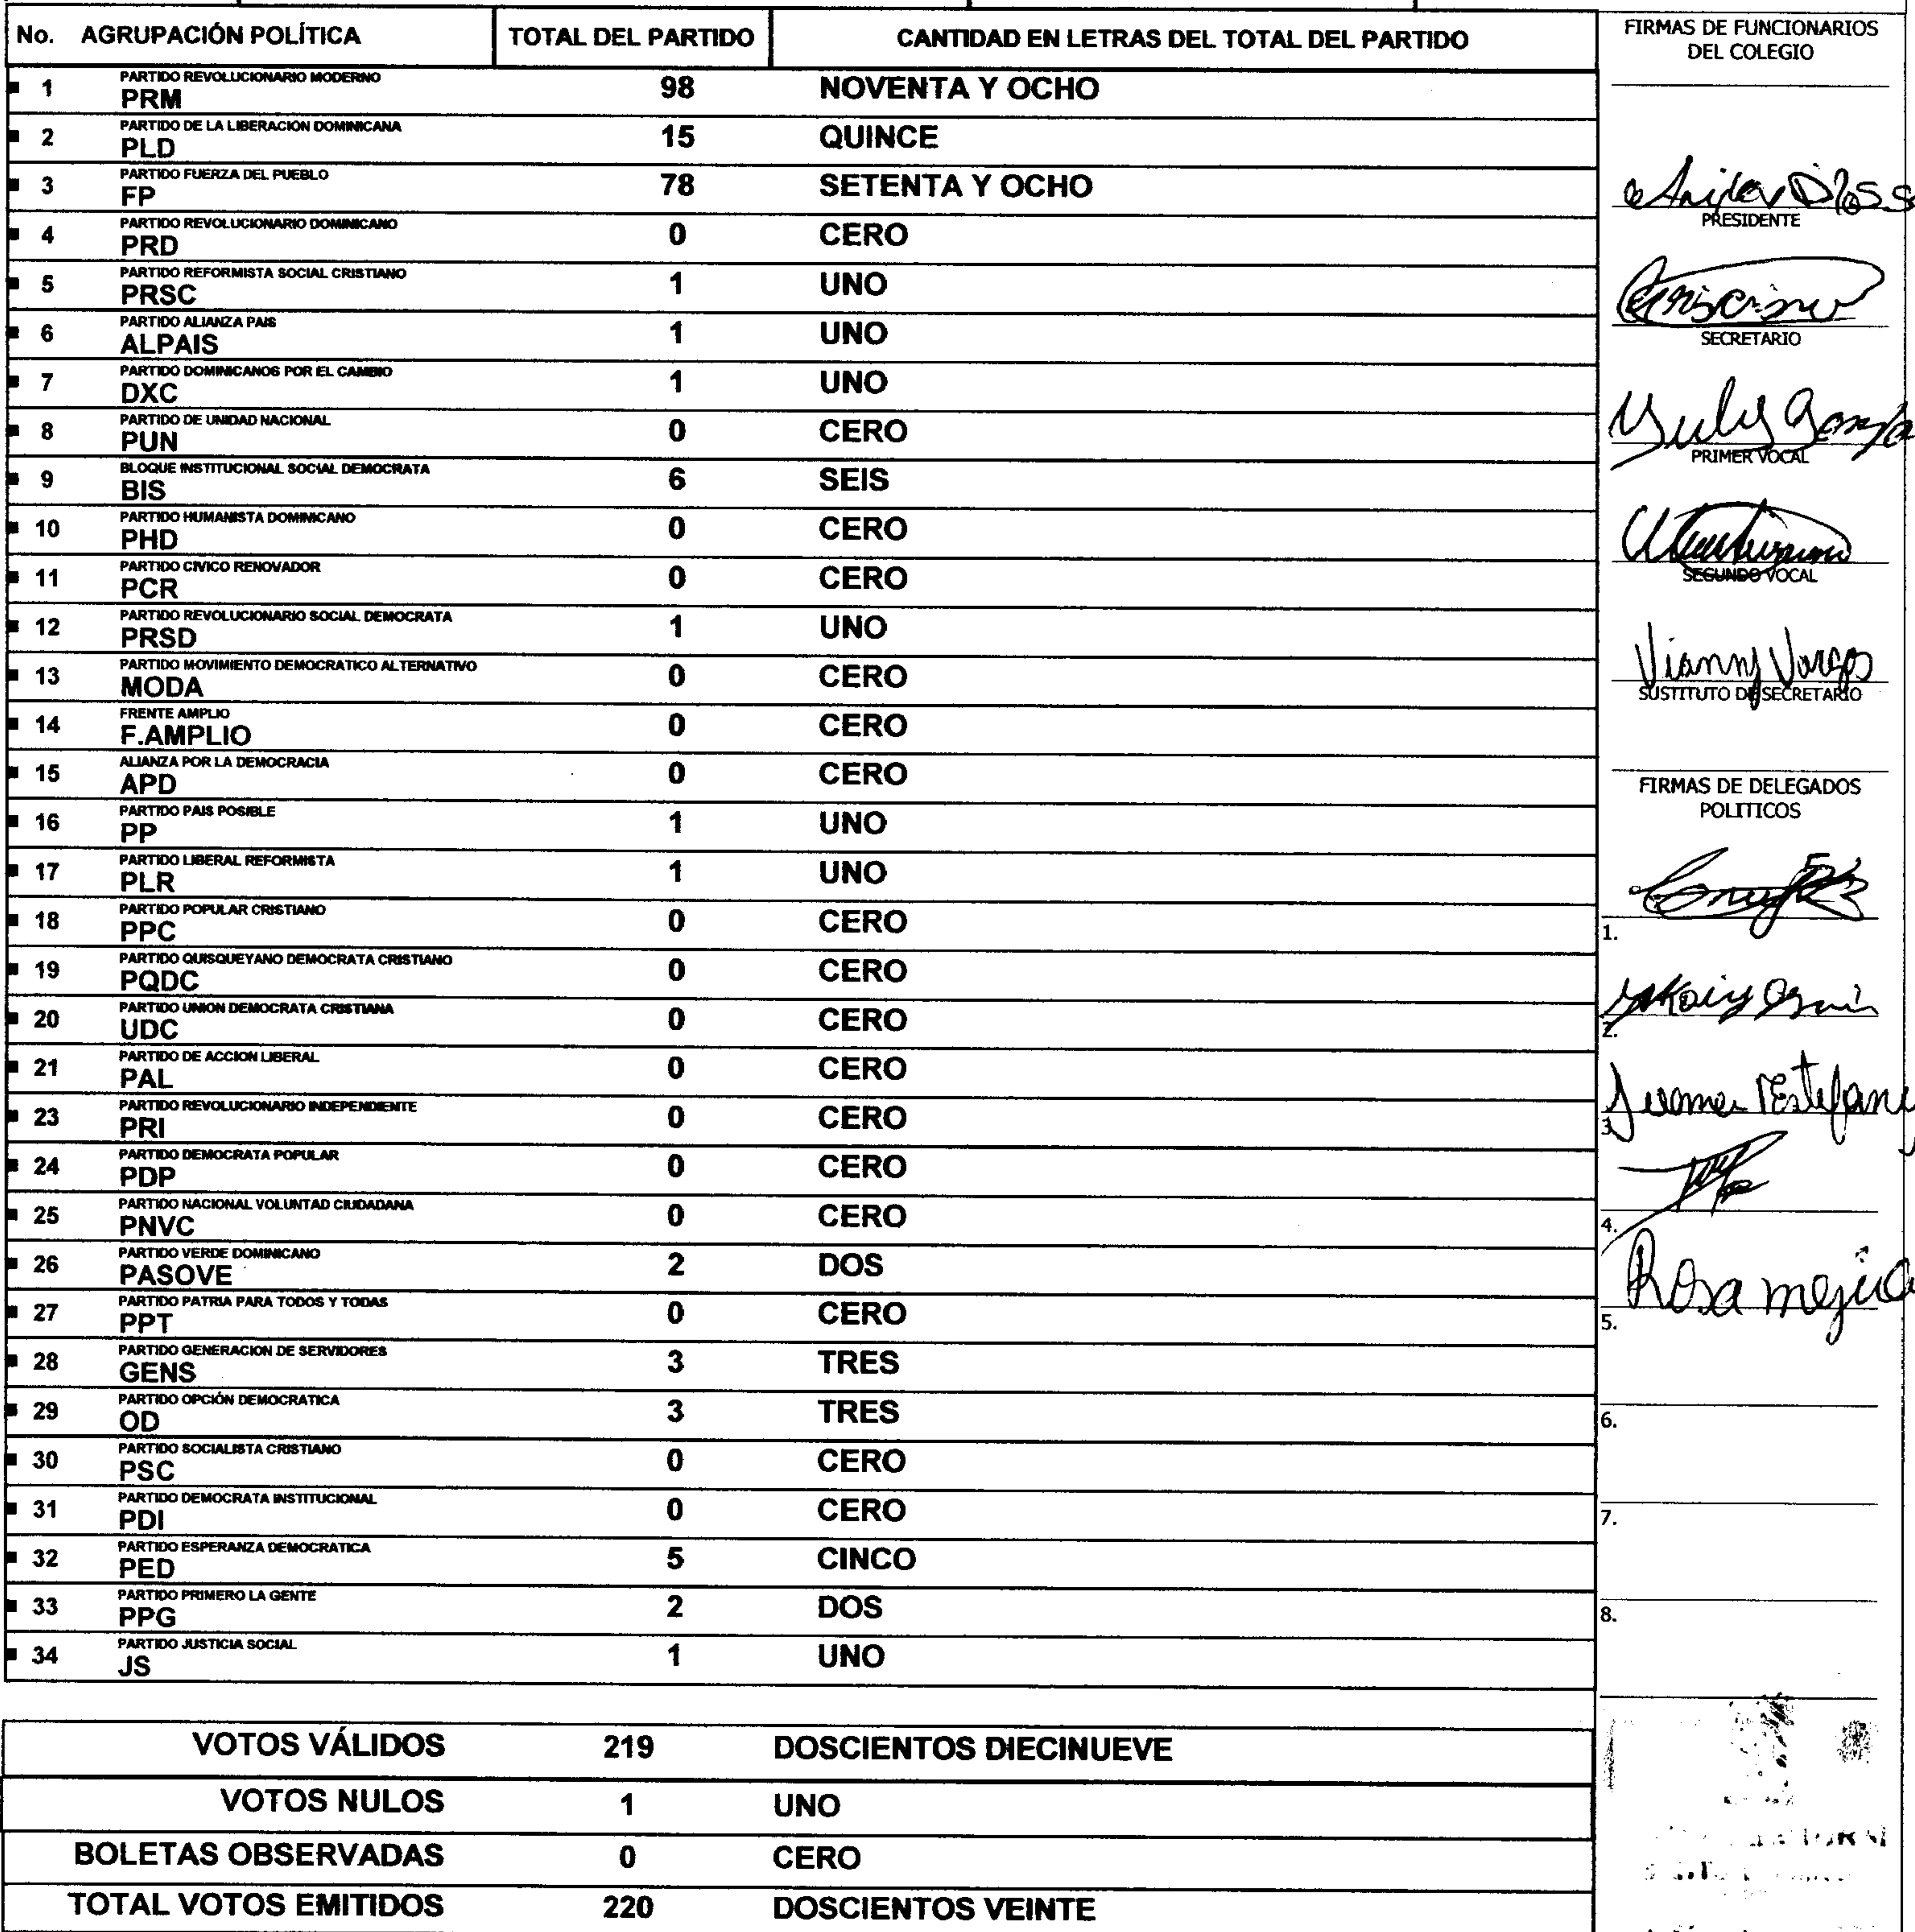 No. AGRUPACIÓN POLÍTICA TOTAL DEL PARTIDO CANTIDAD EN LETRAS DEL TOTAL DEL PARTIDO
PARTIDO REVOLUCIONARIO MODERNO
1 PRM 98 NOVENTA Y OCHO
PARTIDO DE LA LIBERACION DOMINICANA
2 PLD 15 QUINCE
PARTIDO FUERZA DEL PUEBLO
3 FP 78 SETENTA Y OCHO
PARTIDO REVOLUCIONARIO DOMINICANO
4 PRD 0 CERO
PARTIDO REFORMISTA SOCIAL CRISTIANO
5 PRSC 1 UNO
PARTIDO ALIANZA PAIS
6 ALPAIS 1 UNO
PARTIDO DOMINICANOS POR EL CAMBIO
7 DXC 1 UNO
PARTIDO DE UNIDAD NACIONAL
8 PUN 0 CERO
BLOQUE INSTITUCIONAL SOCIAL DEMOCRATA
9 BIS 6 SEIS
PARTIDO HUMANISTA DOMINICANO
10 PHD 0 CERO
PARTIDO CIVICO RENOVADOR
11 PCR 0 CERO
PARTIDO REVOLUCIONARIO SOCIAL DEMOCRATA
12 PRSD 1 UNO
PARTIDO MOVIMIENTO DEMOCRATICO ALTERNATIVO
13 MODA 0 CERO
FRENTE AMPLIO
14 F.AMPLIO 0 CERO
ALIANZA POR LA DEMOCRACIA
15 APD 0 CERO
PARTIDO PAIS POSIBLE
16 PP 1 UNO
PARTIDO LIBERAL REFORMISTA
17 PLR 1 UNO
PARTIDO POPULAR CRISTIANO
18 PPC 0 CERO
PARTIDO QUISQUEYANO DEMOCRATA CRISTIANO
19 PQDC 0 CERO
PARTIDO UNION DEMOCRATA CRISTIANA
20 UDC 0 CERO
PARTIDO DE ACCION LIBERAL
21 PAL 0 CERO
PARTIDO REVOLUCIONARIO INDEPENDIENTE
23 PRI 0 CERO
PARTIDO DEMOCRATA POPULAR
24 PDP 0 CERO
PARTIDO NACIONAL VOLUNTAD CIUDADANA
25 PNVC 0 CERO
PARTIDO VERDE DOMINICANO
26 PASOVE 2 DOS
PARTIDO PATRIA PARA TODOS Y TODAS
27 PPT 0 CERO
PARTIDO GENERACION DE SERVIDORES
28 GENS 3 TRES
PARTIDO OPCIÓN DEMOCRATICA
29 OD 3 TRES
PARTIDO SOCIALISTA CRISTIANO
30 PSC 0 CERO
PARTIDO DEMOCRATA INSTITUCIONAL
31 PDI 0 CERO
PARTIDO ESPERANZA DEMOCRATICA
32 PED 5 CINCO
PARTIDO PRIMERO LA GENTE
33 PPG 2 DOS
PARTIDO JUSTICIA SOCIAL
34 JS 1 UNO
VOTOS VÁLIDOS 219 DOSCIENTOS DIECINUEVE
VOTOS NULOS 1 UNO
BOLETAS OBSERVADAS 0 CERO
TOTAL VOTOS EMITIDOS 220 DOSCIENTOS VEINTE
FIRMAS DE FUNCIONARIOS
DEL COLEGIO
PRESIDENTE
SECRETARIO
PRIMER VOCAL
SEGUNDO VOCAL
Vianny Vargas
SUSTITUTO DE SECRETARIO
FIRMAS DE DELEGADOS
POLITICOS
1.
2.
3.
4.
Rosa mejia
5.
6.
7.
8.